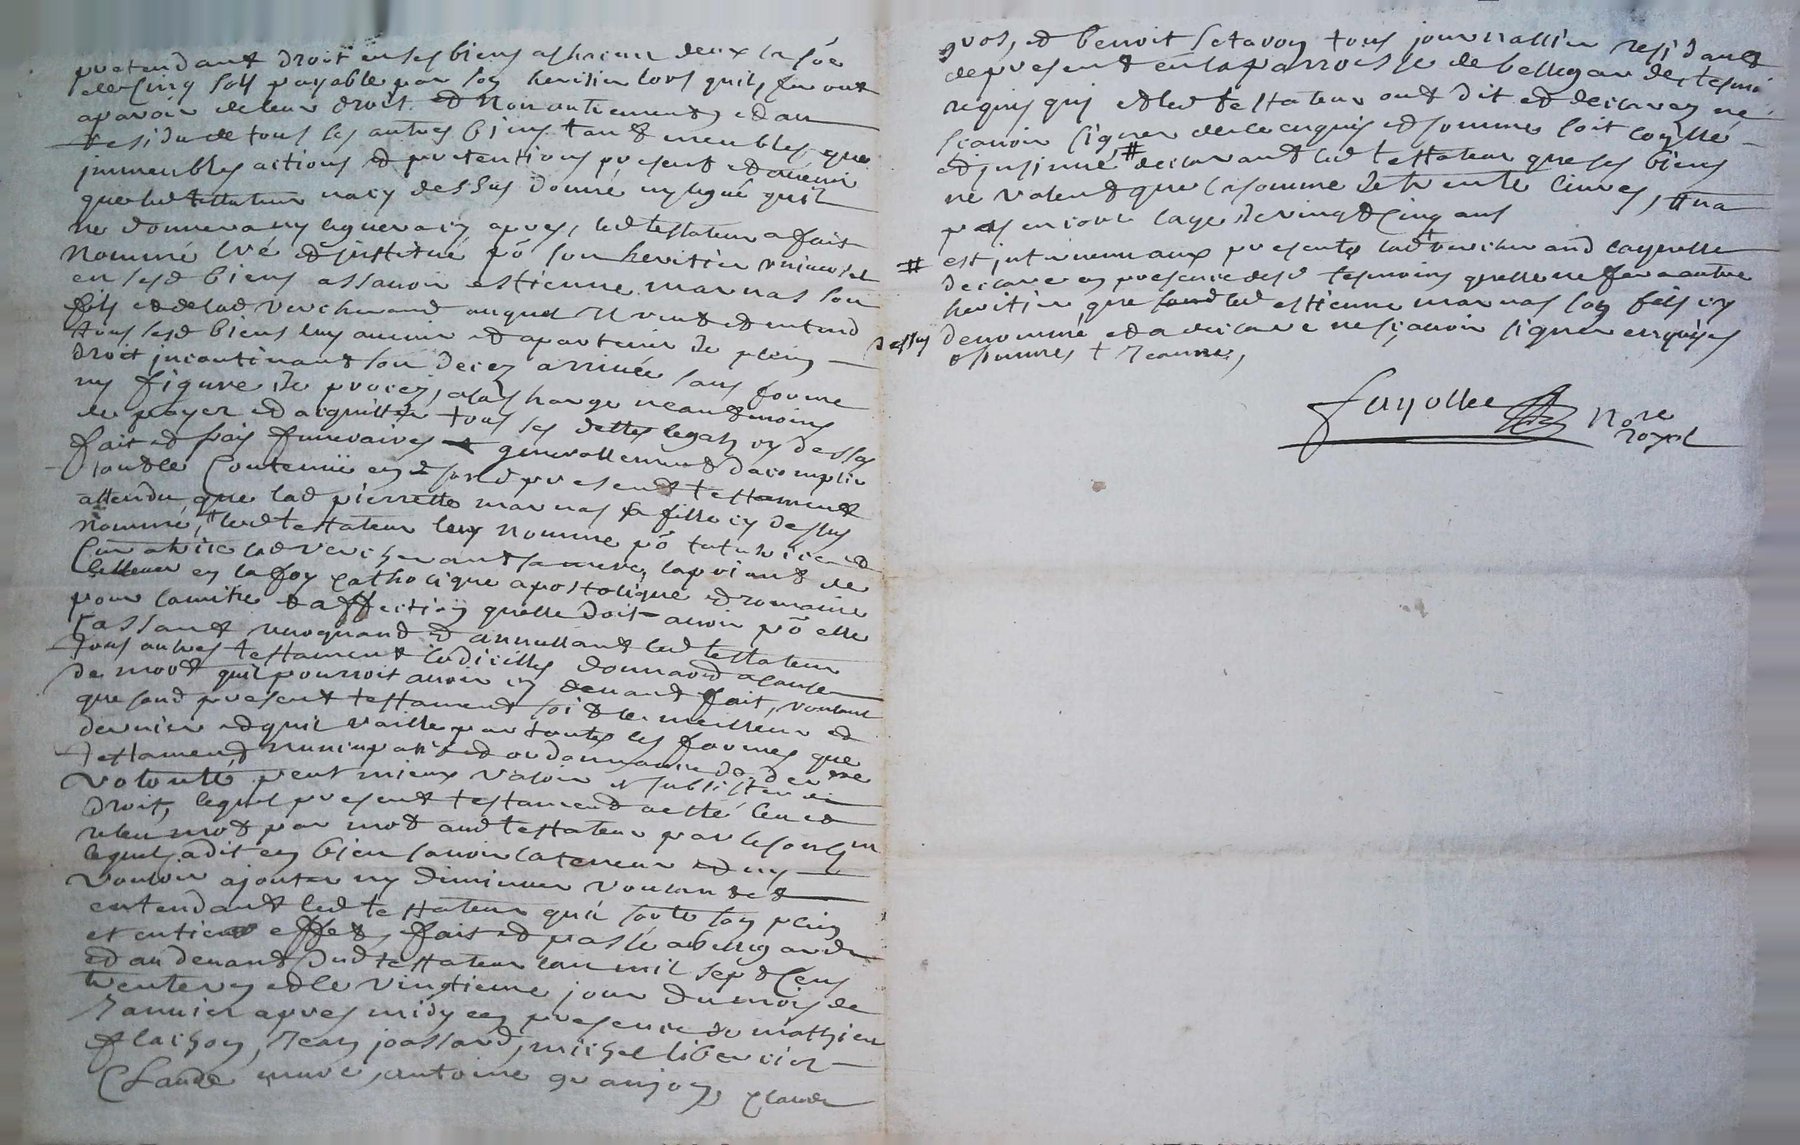 pretendant droit en ses biens a chacun deux la so͞e
de cinq sols payable par son heritier lors quils feront
aparoir de leur droit et non autrement, et au
residu de tous les autres biens tant meubles que
immeubles actions et pretentions present et avenir
que led testateur na cy dessus donné ny legué quil
ne donnera ny leguera cy apres, led testateur a fait
nommé créé et justitué po͞ son heritier universel
en sesd biens assavoir estienne marnas son
fils et de lad vercherand auquel Il veut et entend
tous sesd biens luy avenir et apartenir de plein
droit jncontinant son decez arrivée sans forme
ny figure de procez, a la charge neantmoins
de payer et acquitter tous ses dettes legatz cy dessus
fait et frais funeraires et generallement dacomplir
tout le Contenu en sond present testament
attendu que lad pierrette marnas sa fille cy dessus
nommé, # led testateur luy nomme po͞ tutrice et
Curatrice lad vercherand sa mere, la priant de
lellever en la foy catholique apostolique et romaine
pour lamitié et affection quelle doit avoir po͞ elle
Cassant revoquand et annullant led testateur
tous autres testament codicilles donnaõn a cause
de mort quil pourroit avoir cy devant fait, voulant
que sond present testament soit le meilleur et
dernier et quil vaille par toutes les formes que
testament nuncupatif et ordonnance de dern͞re
volonté peut mieux valoir et subsister de
droit, lequel present testament a esté leu et
releu mot par mot aud testateur par le sousig͞né
lequel a dit en bien savoir la teneur et ny
vouloir ajouter ny diminuer voulant et
entendant led testateur quil sorte son plein
et entier effet, fait et passé a bellegarde
et au devant dud testateur lan mil sept Cens
trente ry et le vingtieme jour du mois de
Janvier apres midy en presence de mathieu
flachon, Jean joassard, michel libercier
Claude mure, antoine granjon, Claude
gros, et benoit setavon tous journallier residant
de present en la parroisse de bellegarde, tesmoi͞
requis qui et led testateur ont dit et declarez ne
scavoir signer de ce enquis et sommé soit controllé
et jnsinué # declarant led testateur que ses biens
ne valent que la somme de trente livres, # na
pas encore lage de vingt Cinq ans
# est jntervenu aux presentes lad verchevand laquelle
declare en presence desd tesmoins quelle ne fera autre
heritier que led estienne marnas son fils cy
dessus denommé et a declaré ne scavoir signer enquises
et sommes + Jeanne,
fayolle No͞re
royal